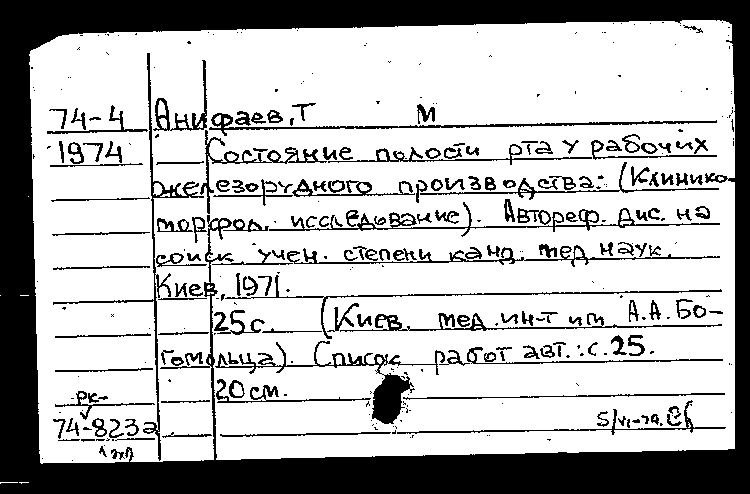 74-4 Анифаев, Т М
1974 Состояние полости рта у рабочих
железорудного производства: (Клинико-
морфол. исследование). Автореф. дис. на
соиск. учен. степени канд. мед. наук.
Киев, 1971.
25 с. (Киев. мед. ин-т им. А.А. Бо-
гомольца). Список работ авт.: с. 25.
20 см.
РК-
74-823а
5/VI-74.